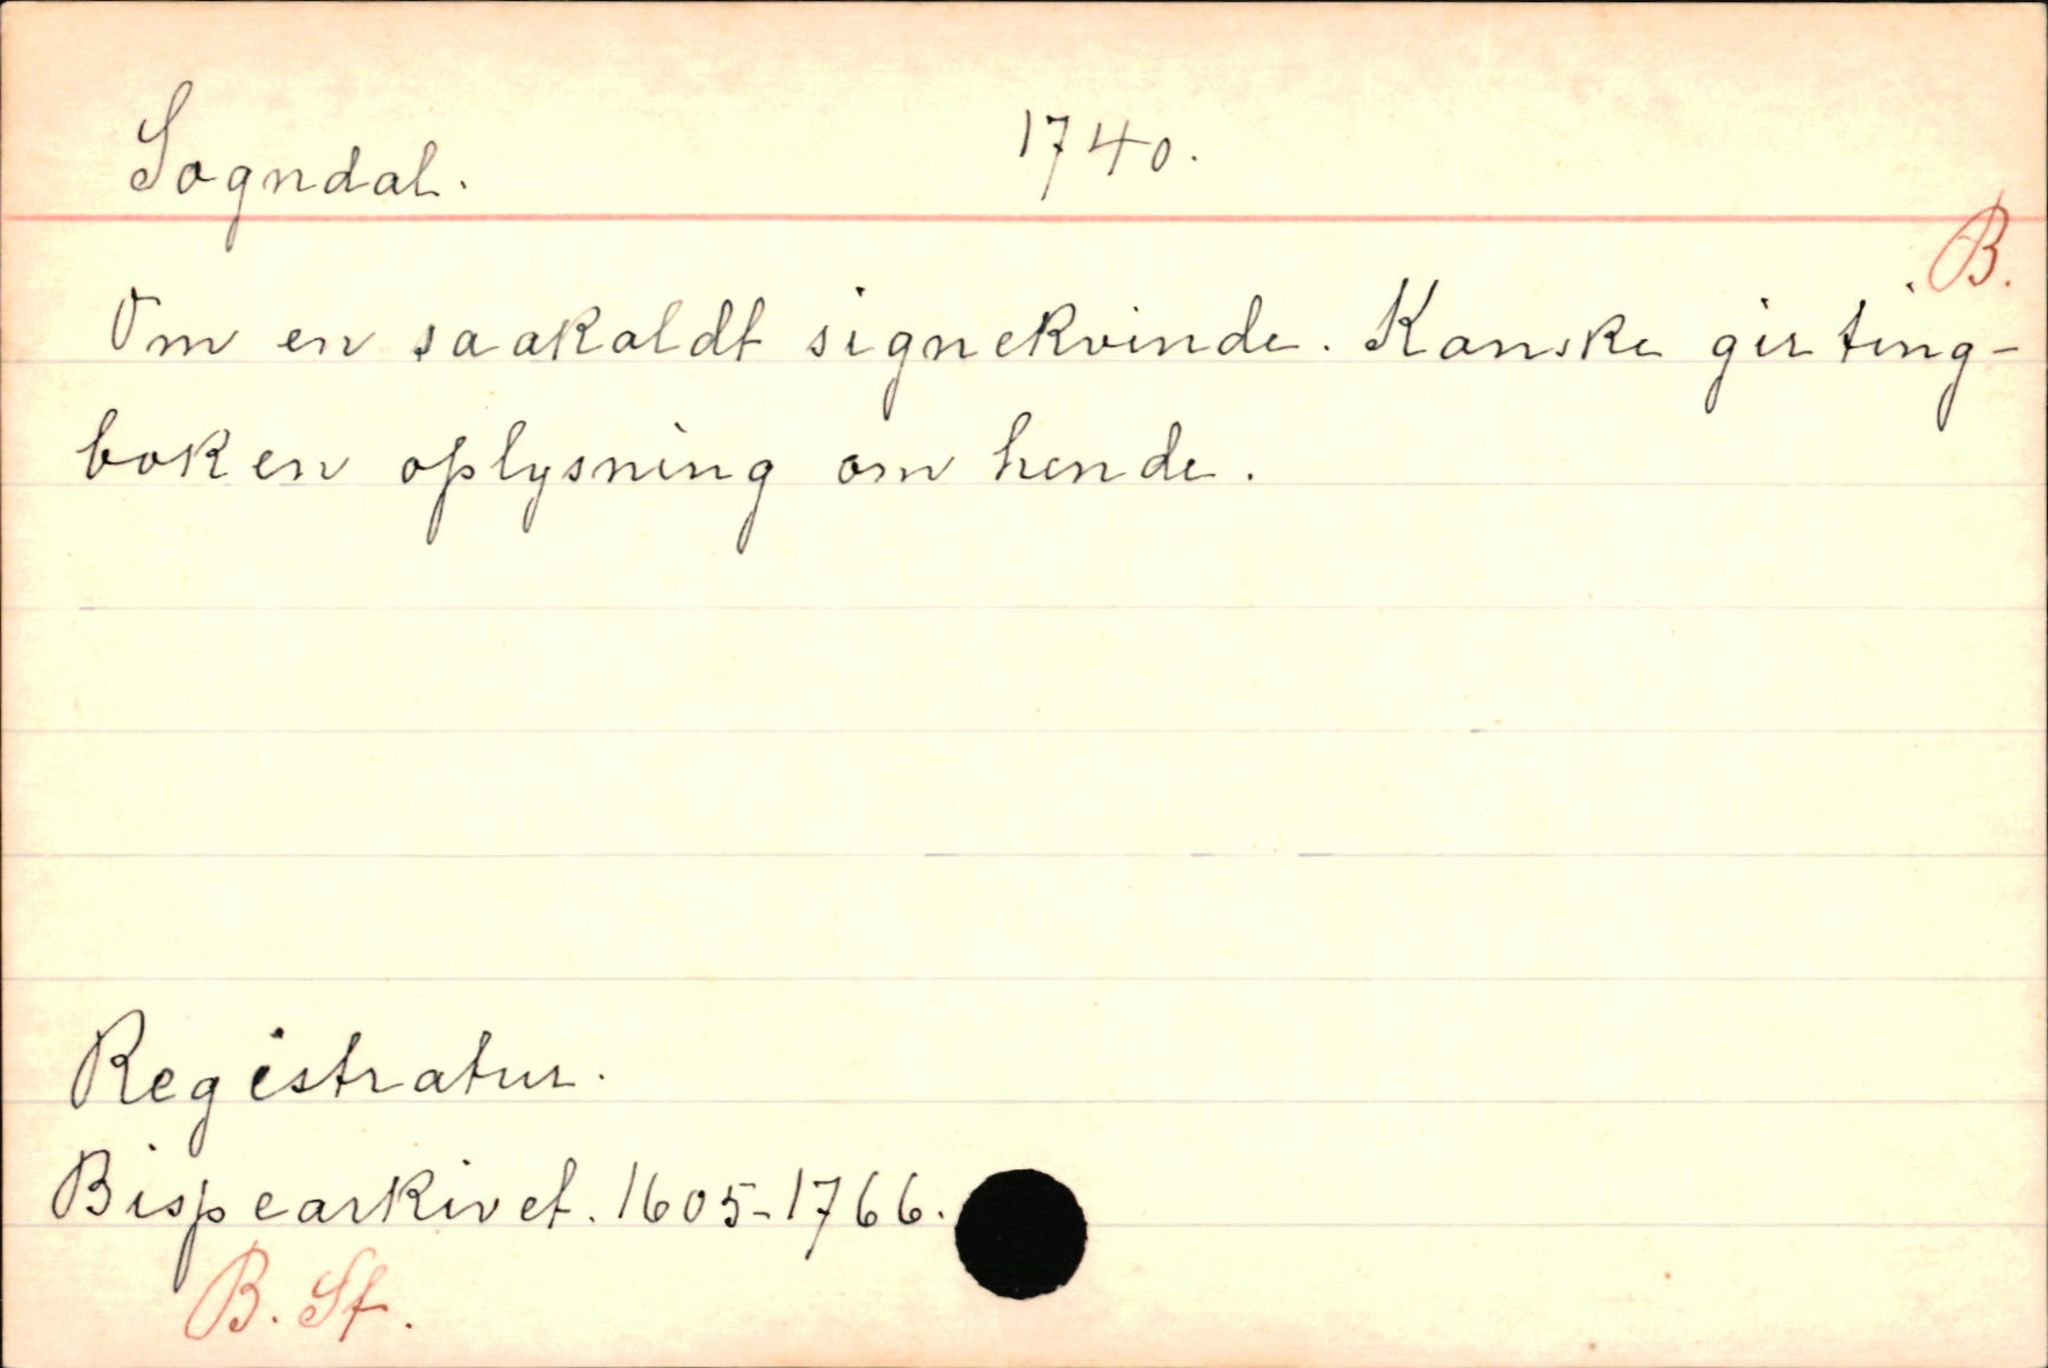 Sogndal. 1740.
B.
Om en saakaldt signekvinde. Kanske gir ting-
boken oplysning om hende.
Registratur.
Bispearkivet. 1605-1766.
B. Sf.